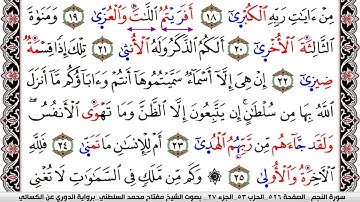 مِنْ ءَايَٰتِ رَبِّهِ الْكُبْرَىٰٓ ١٨ أَفَرَءَيْتُمُ اللَّٰتَ وَالْعُزَّىٰ ١٩ وَمَنَوٰةَ
الثَّالِثَةَ الْأُخْرَىٰٓ ٢٠ أَلَكُمُ الذَّكَرُ وَلَهُ الْأُنثَىٰ ٢١ تِلْكَ إِذًا قِسْمَةٌ
ضِيزَىٰٓ ٢٢ إِنْ هِىَ إِلَّآ أَسْمَآءٌ سَمَّيْتُمُوهَآ أَنتُمْ وَءَابَآؤُكُم مَّآ أَنزَلَ
اللَّهُ بِهَا مِن سُلْطَٰنٍ إِن يَتَّبِعُونَ إِلَّا الظَّنَّ وَمَا تَهْوَى الْأَنفُسُ
وَلَقَدْ جَآءَهُم مِّن رَّبِّهِمُ الْهُدَىٰٓ ٢٣ أَمْ لِلْإِنسَٰنِ مَا تَمَنَّىٰ ٢٤ فَلِلَّهِ
الْأَخِرَةُ وَالْأُولَىٰ ٢٥ وَكَم مِّن مَّلَكٍ فِى السَّمَٰوَٰتِ لَا تُغْنِى
سورة النجم . الصفحة ٥٢٦ . الحزب ٥٣ . الجزء ٢٧ . بصوت الشيخ مفتاح محمد السلطني . برواية الدوري عن الكسائي